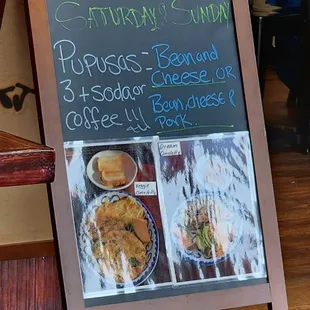 SATURDAY & SUNDAY
Pupusas =
3 + soda or
coffee !!!
Bean and
Cheese, OR
Bean, cheese &
Pork.
Veggie
Dream